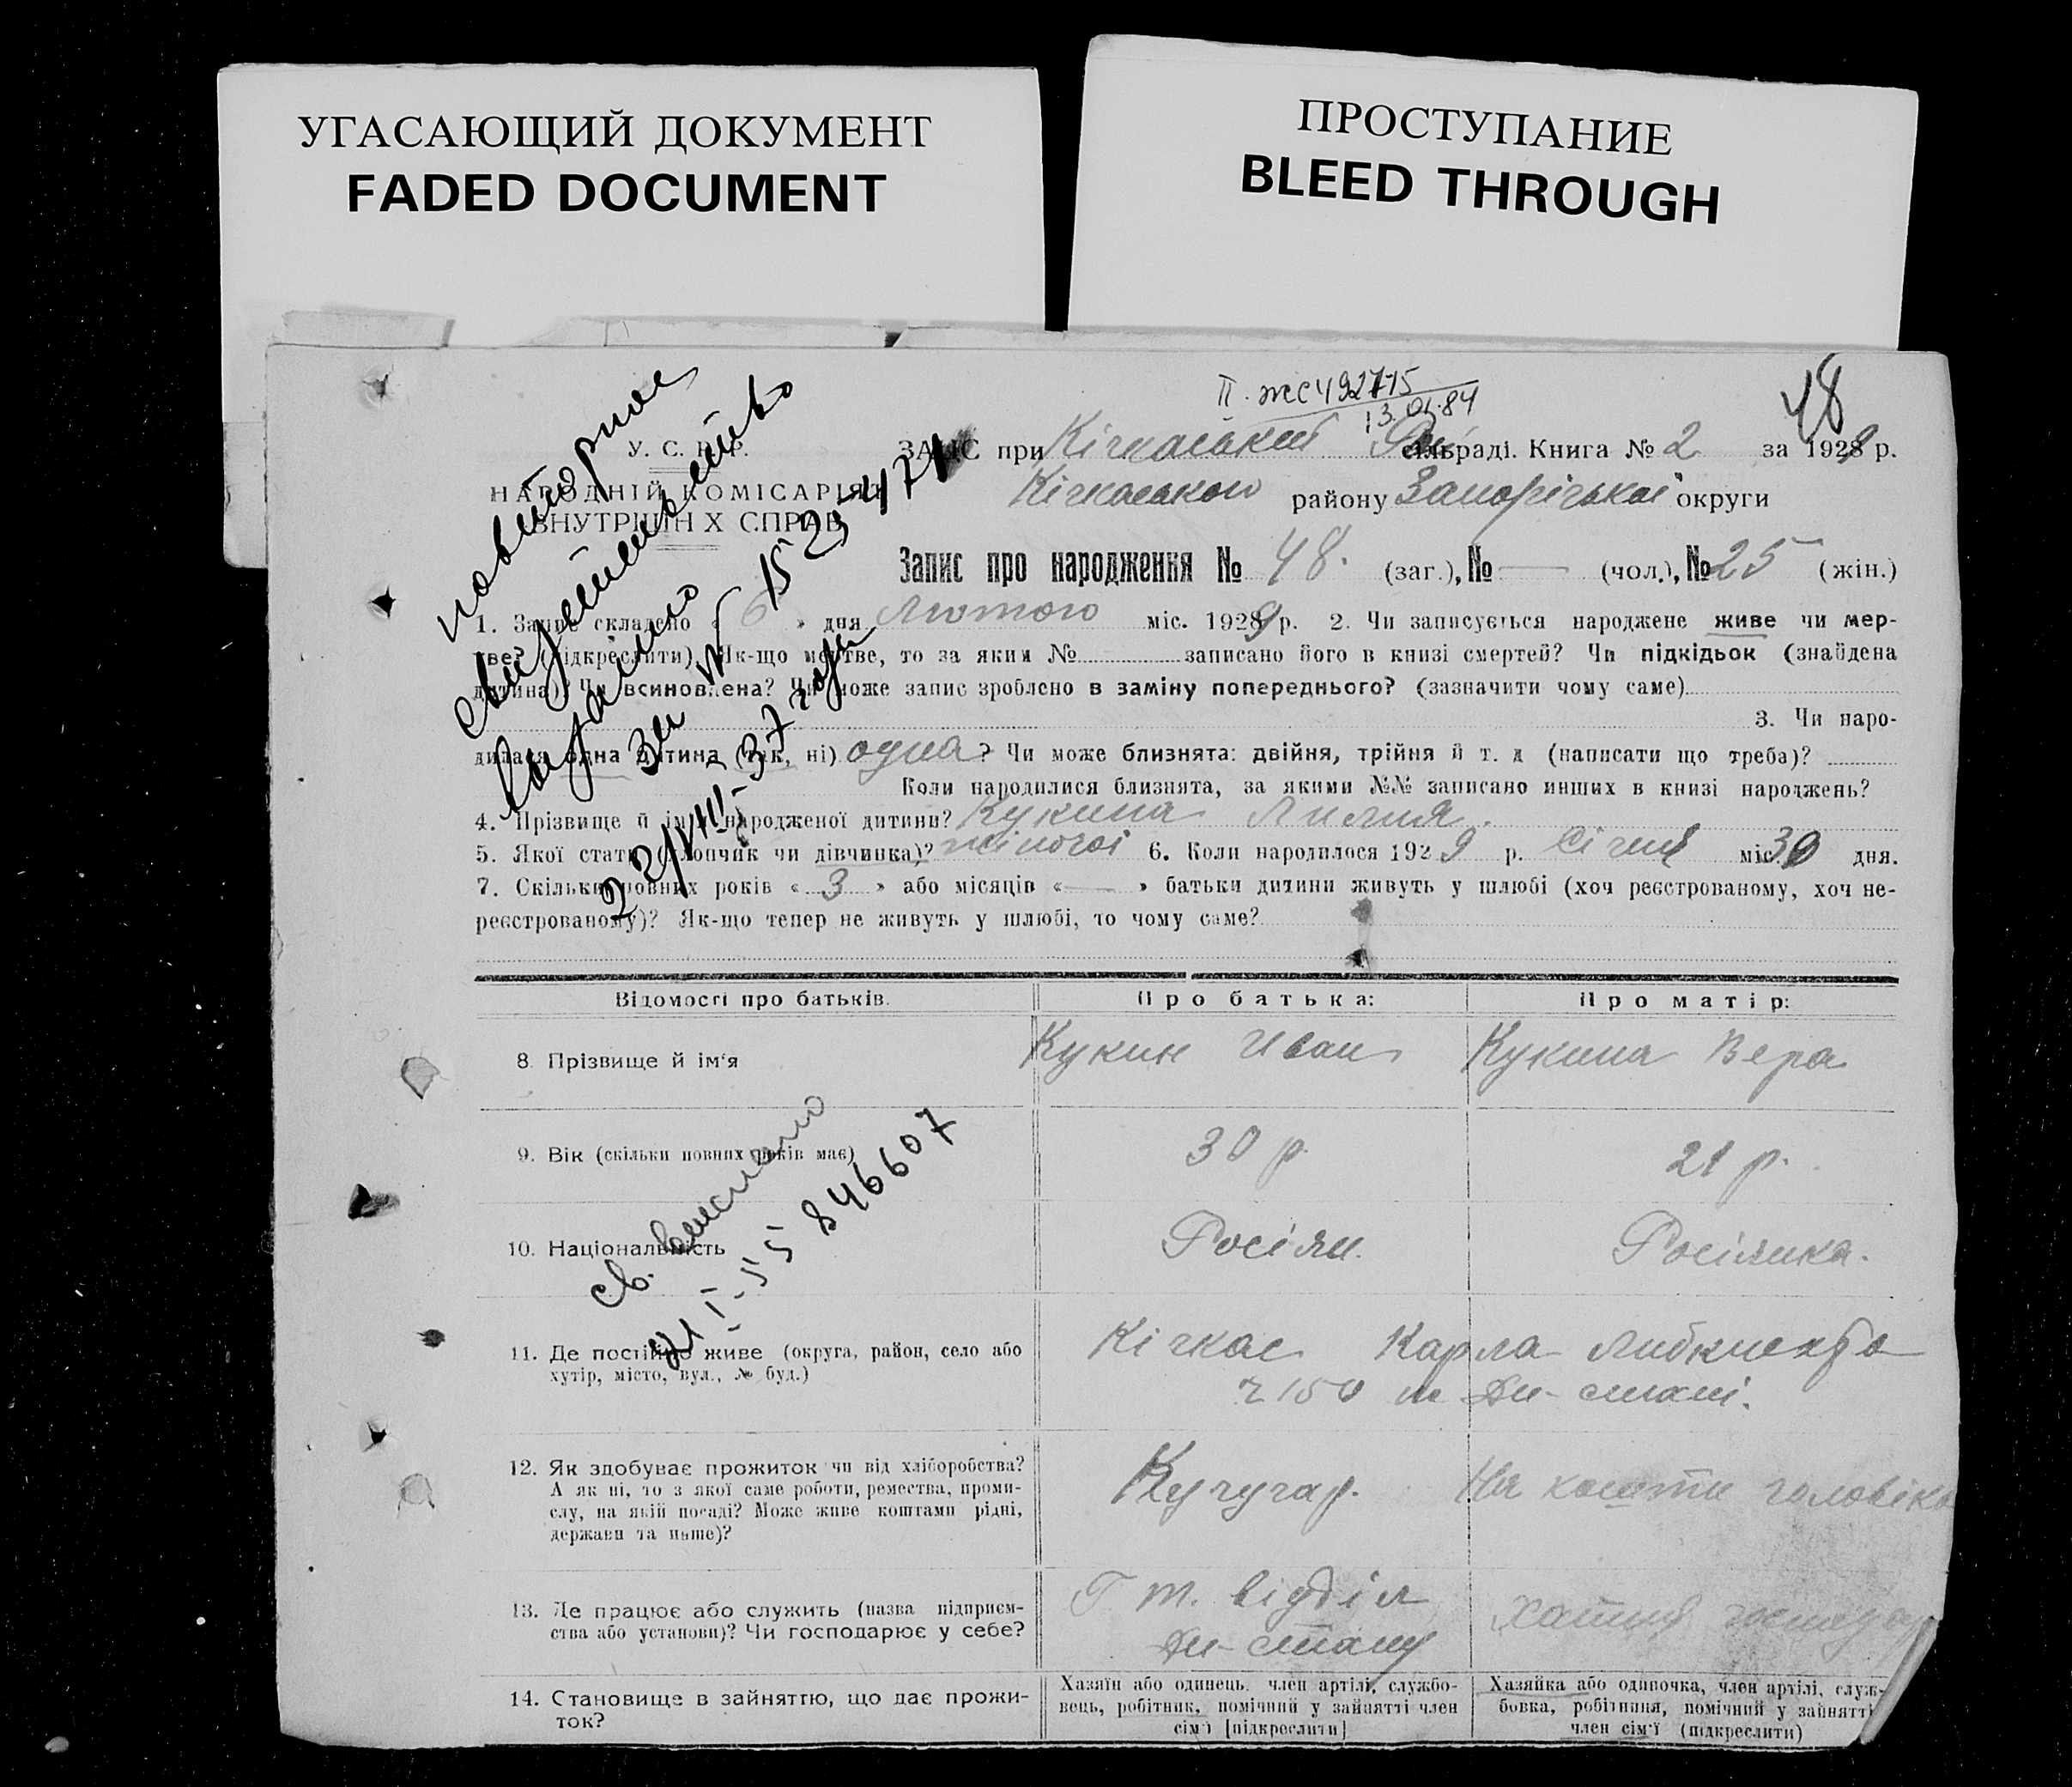 УГАСАЮЩИЙ ДОКУМЕНТ
FADED DOCUMENT
ПРОСТУПАНИЕ
BLEED THROUGH
II. жс 492715
13.01.84
48
У. С. Р. Р.
НАРОДНІЙ КОМІСАРІЯТ
ВНУТРІШН Х СПРАВ
ЗАПИС при Кічкаській сільраді. Книга № 2 за 1929 р.
Кічкаського району Запорізької округи
Запис про народження № 48. (заг.), № — (чол.), № 25 (жін.)
повторное
свидетельство
выдано
за № 1523471
22/VIII-37 года
1. Запис складено « 6 » дня Лютого міс. 1929 р. 2. Чи записується народжене живе чи мер-
тве? (підкреслити). Як-що мертве, то за яким № записано його в книзі смертей? Чи підкідьок (знайдена
дитина)? Чи всиновлена? Чи може запис зроблено в заміну попереднього? (зазначити чому саме)
3. Чи наро-
дилася одна дитина (так, ні) одна? Чи може близнята: двійня, трійня й т. д (написати що треба)?
Коли народилися близнята, за якими №№ записано инших в книзі народжень?
4. Прізвище й ім'я народженої дитини? Кукина Лилия.
5. Якої статі (хлопчик чи дівчинка)? жіночої 6. Коли народилося 1929 р. Січня міс. 30 дня.
7. Скільки повних років « 3 » або місяців « — » батьки дитини живуть у шлюбі (хоч реєстрованому, хоч не-
реєстрованому)? Як-що тепер не живуть у шлюбі, то чому саме?
Відомості про батьків. Про батька: Про матір:
8. Прізвище й ім'я Кукин Иван Кукина Вера
9. Вік (скільки повних років має) 30 р. 21 р.
св. выслано
I-55 846607
10. Національність Росіян. Росіянка.
11. Де постійно живе (округа, район, село або
хутір, місто, вул., № буд.)
Кічкас Карла Либкнехта
150
12. Як здобуває прожиток чи від хліборобства?
А як ні, то з якої саме роботи, ремества, проми-
слу, на якій посаді? Може живе коштами рідні,
держави та инше)?
Кучугар. На кошти головіка
13. Де працює або служить (назва підприєм-
ства або установи)? Чи господарює у себе?
Г т. відділ
Дн-стану
Хатня господар
14. Становище в зайняттю, що дає прожи-
ток?
Хазяїн або одинець. член артілі, службо-
вець, робітник, помічний у зайнятті член
сім'ї [підкреслити]
Хазяйка або одиночка, член артілі, служ-
бовка, робітниця, помічний у зайнятті
член сім'ї (підкреслити)